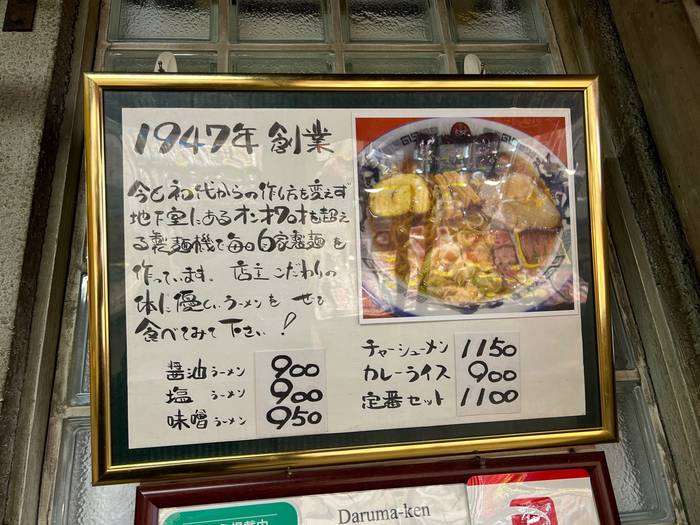 1947年 創業
今も初代からの作り方を変えず
地下室にあるオンオフのオを超え
る製麺機で毎日自家製麺を
作っています。店主こだわりの
体に優しいラーメンを ぜひ
食べてみて下さい!
醤油ラーメン 900
塩ラーメン 900
味噌ラーメン 950
チャーシューメン 1150
カレーライス 900
定番セット 1100
掲載中
Daruma-ken